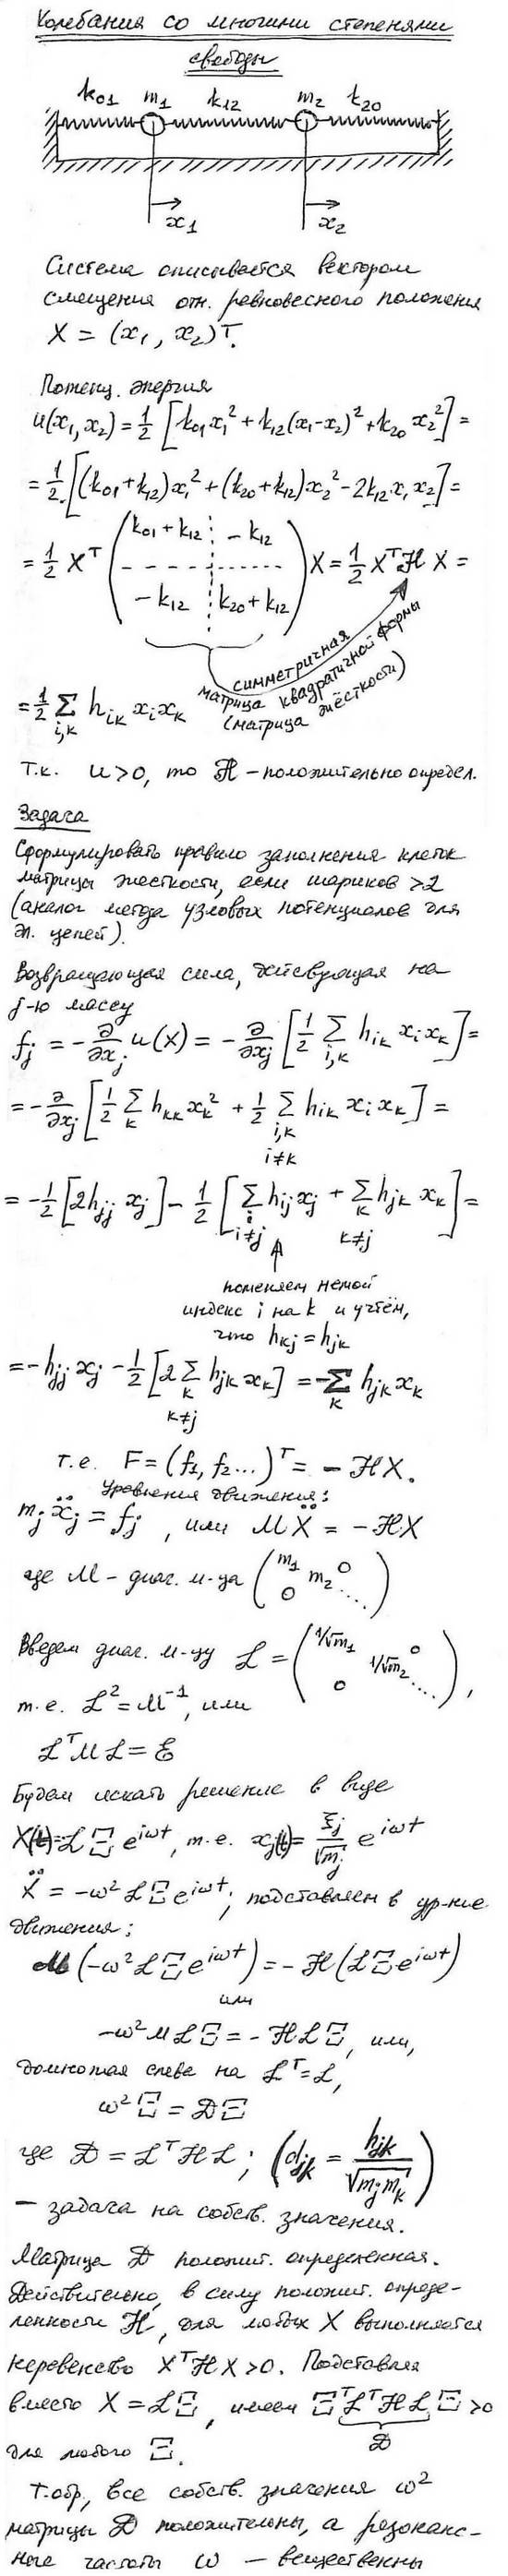 Колебания со многими степенями
свободы
k₀₁ m₁ k₁₂ m₂ k₂₀
x₁ x₂
Система описывается вектором
смещения отн. равновесного положения
X = (x₁, x₂)T.
Потенц. энергия
u(x₁,x₂) = 1/2 [k₀₁x₁² + k₁₂(x₁-x₂)² + k₂₀ x₂²] =
= 1/2 [(k₀₁+k₁₂)x₁² + (k₂₀+k₁₂)x₂² - 2k₁₂x₁x₂] =
= 1/2 Xᵀ (k₀₁+k₁₂ -k₁₂
-k₁₂ k₂₀+k₁₂) X = 1/2 XᵀℋX =
симметричная
матрица квадратичной формы
(матрица жёсткости)
= 1/2 Σ h_ik x_i x_k
i,k
Т.к. u>0, то ℋ – положительно определ.
Задача
Сформулировать правило заполнения клеток
матрицы жесткости, если шариков >2
(аналог метода узловых потенциалов для
эл. цепей).
Возвращающая сила, действующая на
j-ю массу
f_j = -∂/∂x_j u(X) = -∂/∂x_j [1/2 Σ_{i,k} h_ik x_i x_k] =
= -∂/∂x_j [1/2 Σ_k h_kk x_k² + 1/2 Σ_{i,k i≠k} h_ik x_i x_k] =
= -1/2 [2h_jj x_j] - 1/2 [Σ_{i i≠j} h_ij x_j + Σ_{k k≠j} h_jk x_k] =
поменяем немой
индекс i на k и учтём,
что h_kj = h_jk
= -h_jj x_j - 1/2 [2 Σ_{k k≠j} h_jk x_k] = -Σ_k h_jk x_k
т.е. F = (f₁, f₂...)ᵀ = -ℋX.
Уравнения движения:
m_j ẍ_j = f_j, или MẌ = -ℋX
где M – диаг. м-ца (m₁ m₂ 0 0 ...)
Введем диаг. м-цу ℒ = (1/√m₁ 1/√m₂ 0 0 ...),
т.е. ℒ² = M⁻¹, или
ℒᵀMℒ = ℰ
Будем искать решение в виде
X(t) = ℒΞe^{iωt}, т.е. x_j(t) = ξ_j/√m_j e^{iωt}
Ẍ = -ω²ℒΞe^{iωt}; подставляем в ур-ние
движения:
M(-ω²ℒΞe^{iωt}) = -ℋ(ℒΞe^{iωt})
или
-ω²MℒΞ = -ℋℒΞ, или,
домножая слева на ℒᵀ=ℒ,
ω²Ξ = 𝒟Ξ
где 𝒟 = ℒᵀℋℒ; (d_jk = h_jk/√m_j m_k)
– задача на собств. значения.
Матрица 𝒟 положит. определенная.
Действительно, в силу положит. опреде-
ленности ℋ, для любых X выполняется
неравенство XᵀℋX>0. Подставляя
вместо X = ℒΞ, имеем Ξᵀℒᵀℋℒ Ξ >0
𝒟
для любого Ξ.
Т.обр, все собств. значения ω²
матрицы 𝒟 положительны, а резонанс-
ные частоты ω – вещественны